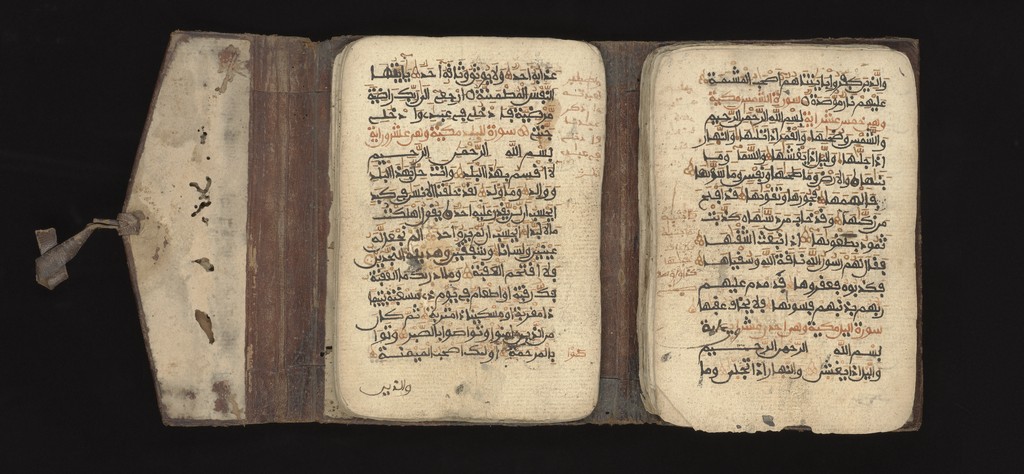 عذابه احد ولا يوثق وثاقه احد يايتها
النفس المطمئنة ارجعي الى ربك راضية
مرضية فادخلي في عبدي وادخلي
جنتي سورة البلد مكية وهي عشرون اية
بسم الله الرحمن الرحيم
لا اقسم بهذا البلد وانت حل بهذا البلد
ووالد وما ولد لقد خلقنا الانسن في كبد
ايحسب ان لن يقدر عليه احد يقول اهلكت
مالا لبدا ايحسب ان لم يره احد الم نجعل له
عينين ولسانا وشفتين وهدينه النجدين
فلا اقتحم العقبة وما ادريك ما العقبة
فك رقبة او اطعام في يوم ذي مسغبة يتيما
ذا مقربة او مسكينا ذا متربة ثم كان
من الذين امنوا وتواصوا بالصبر وتوا
بالمرحمة اوليك اصحب الميمنة
والذين
والذين كفروا بايتنا هم اصحب المشمة
عليهم نار موصدة سورة الشمس مكية
وهي خمس عشر اية بسم الله الرحمن الرحيم
والشمس وضحيها والقمر اذا تليها والنهار
اذا جليها واليل اذا يغشيها والسما وما
بنيها والارض وما طحيها ونفس وما سويها
فالهمها فجورها وتقويها قد افلح
من زكيها وقد خاب من دسيها كذبت
ثمود بطغويها اذ انبعث اشقيها
فقال لهم رسول الله ناقة الله وسقيها
فكذبوه فعقروها فدمدم عليهم
ربهم بذنبهم فسويها فلا يخاف عقبها
سورة اليل مكية وهي احدى عشرون اية
بسم الله الرحمن الرحيم
واليل اذا يغشى والنهار اذا تجلى وما